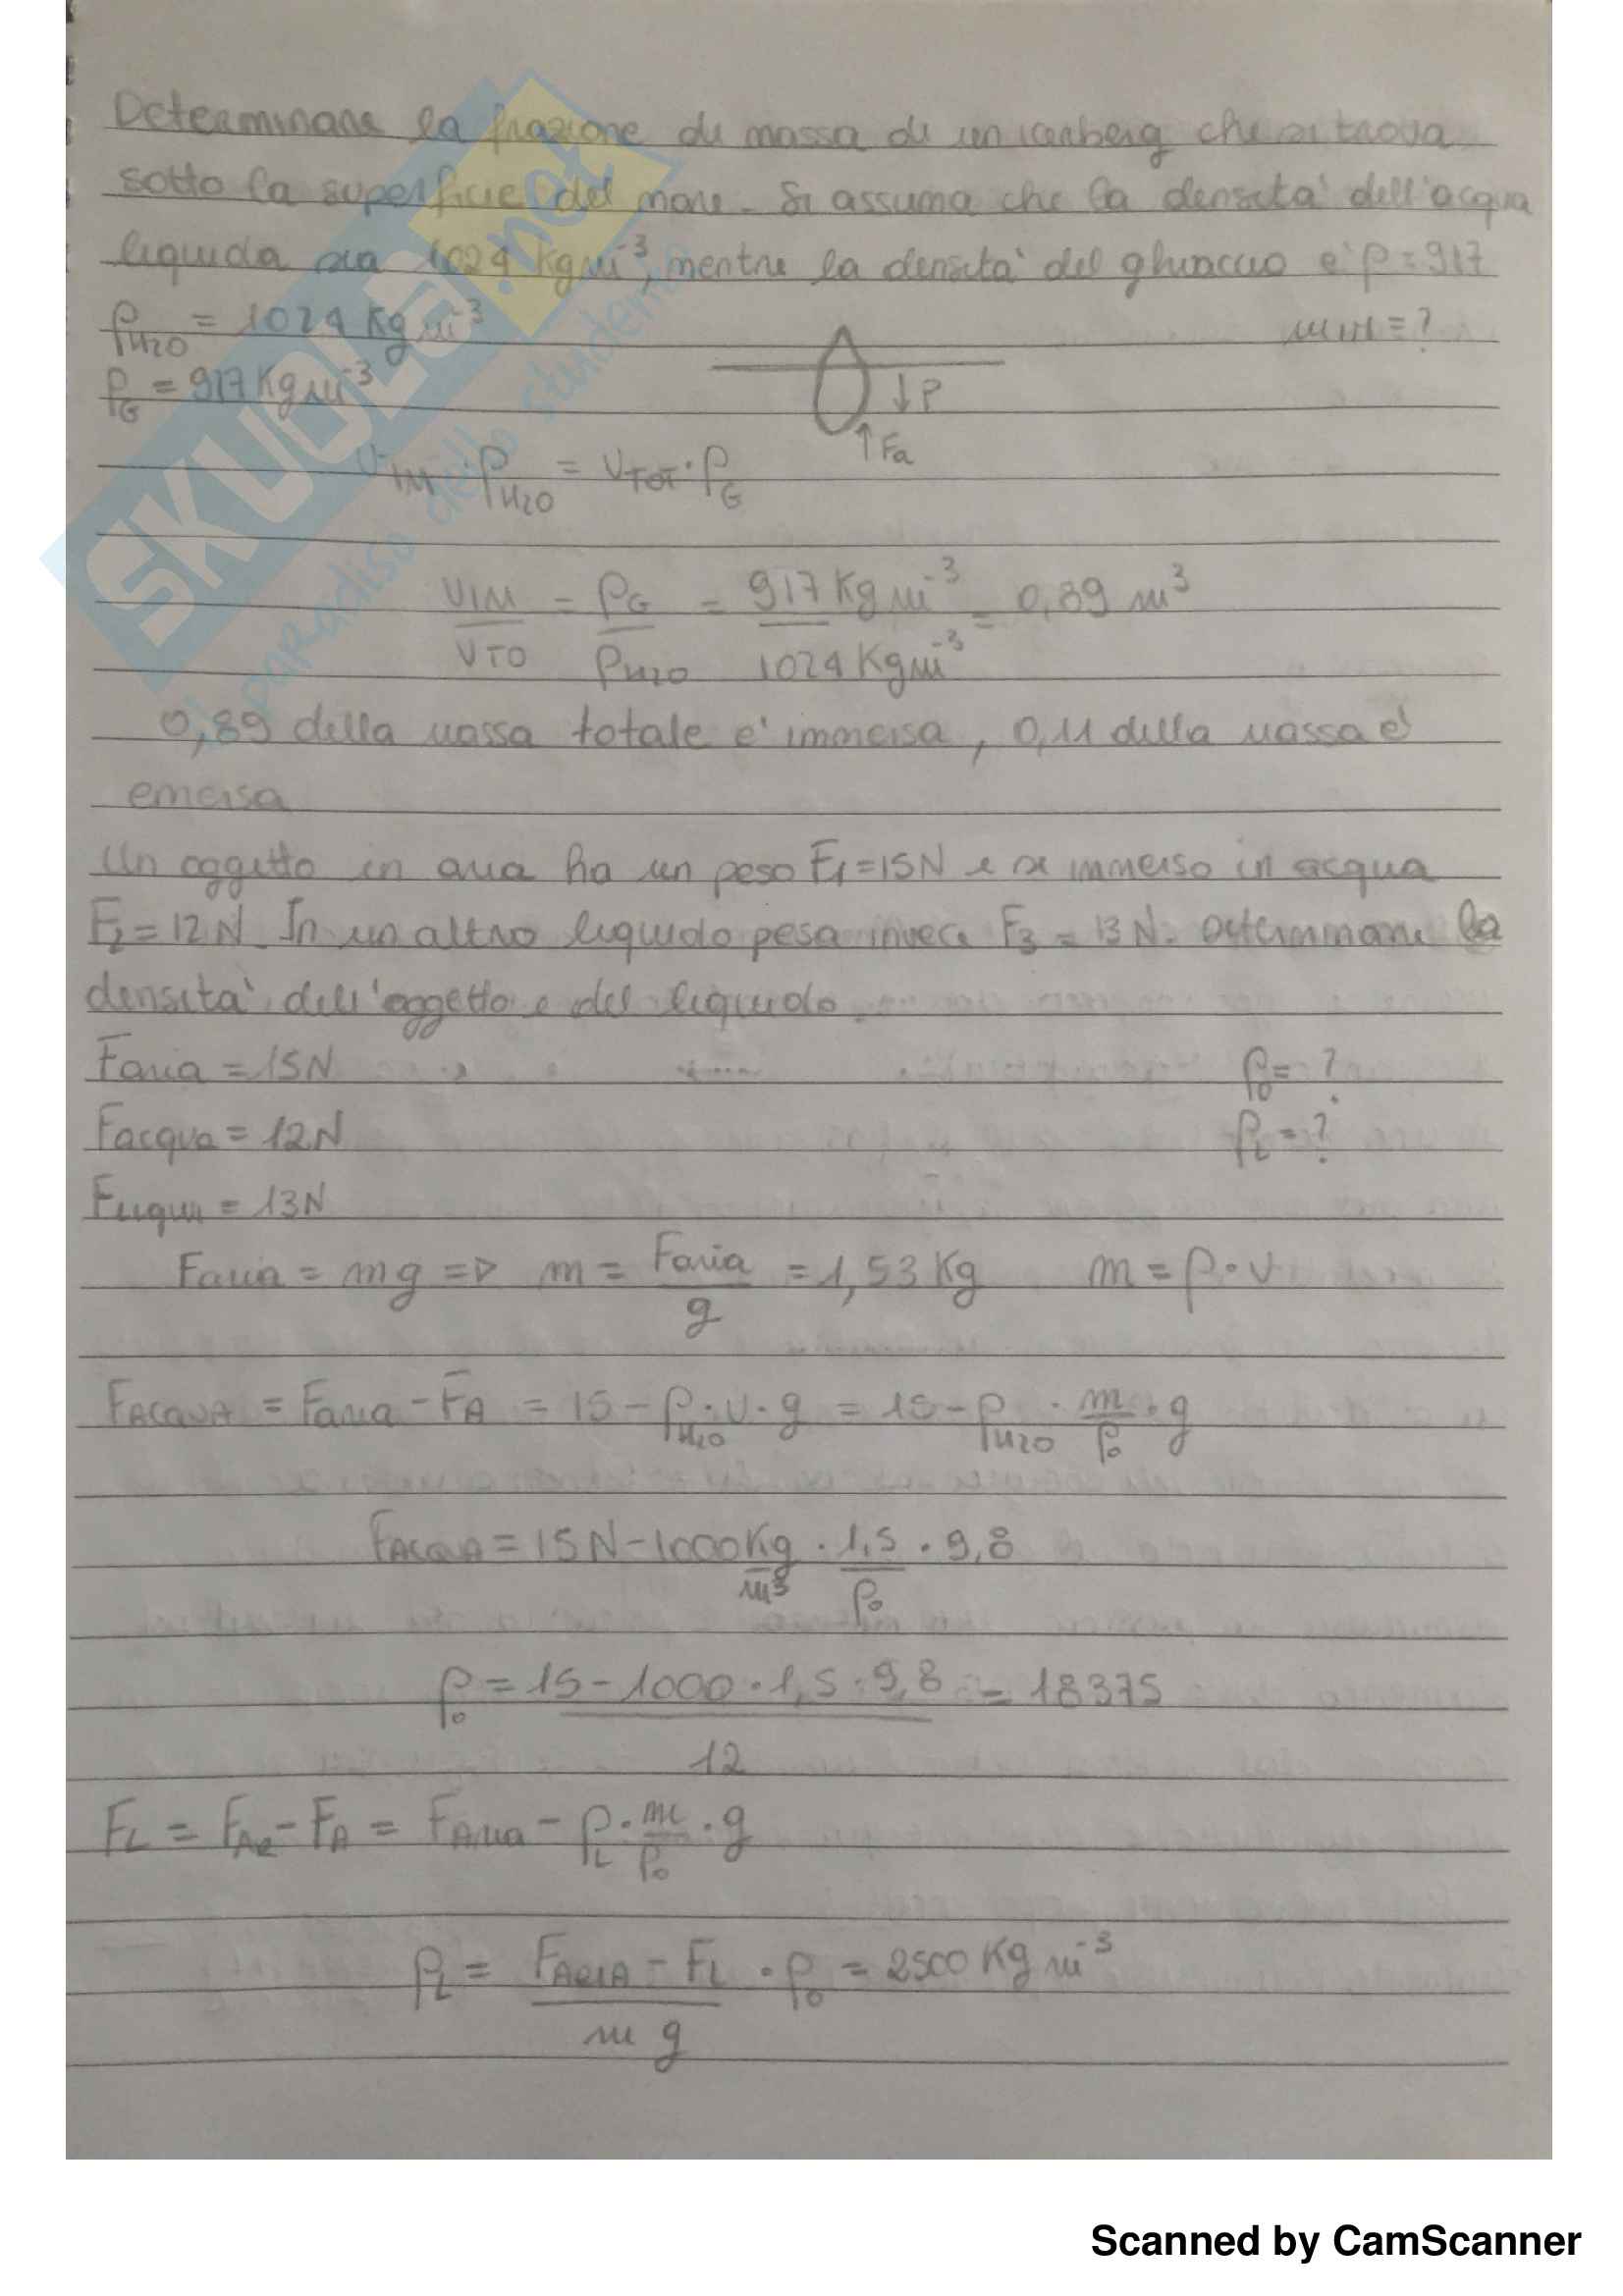 Determinare la frazione di massa di un icerberg che si trova
sotto la superficie del mare. Si assuma che la densita' dell'acqua
liquida sia 1024 kg m⁻³, mentre la densita' del ghiaccio e' ρ = 917
ρH2O = 1024 Kg m⁻³ mIM = ?
ρG = 917 Kg m⁻³
↓P
↑Fa
VIM · ρH2O = VTOT · ρG
VIM / VTO = ρG / ρH2O = 917 Kg m⁻³ / 1024 Kg m⁻³ = 0,89 m³
0,89 della massa totale e' immersa, 0,11 della massa e'
emersa
Un oggetto in aria ha un peso F1 = 15N e se immerso in acqua
F2 = 12N. In un altro liquido pesa invece F3 = 13N. Determinare la
densita' dell'oggetto e del liquido.
Faria = 15N ρo = ?
Facqua = 12N ρL = ?
Fliqui = 13N
Faria = mg => m = Faria / g = 1,53 Kg m = ρ · v
FACQUA = Faria - FA = 15 - ρH2O · v · g = 15 - ρH2O · m/ρo · g
FACQUA = 15N - 1000 Kg/m³ · 1,5/ρo · 9,8
ρo = 15 - 1000 · 1,5 · 9,8 / 12 = 18375
FL = FAR - FA = FAria - ρL · m/ρo · g
ρL = FARIA - FL / m g · ρo = 2500 Kg m⁻³
SKUOLA.net
il paradiso dello studente
Scanned by CamScanner